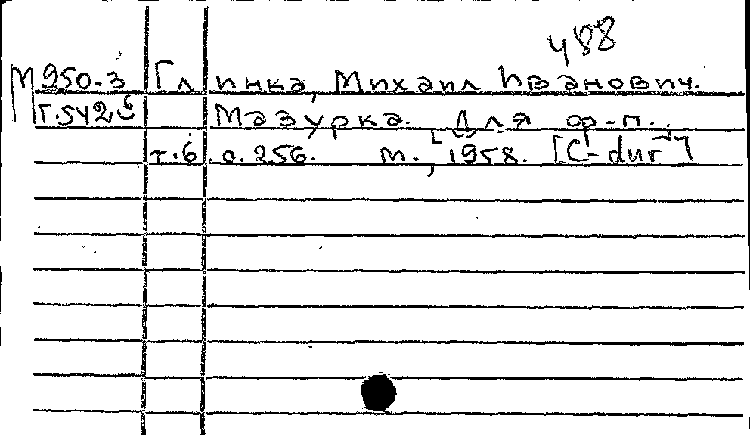 488
М 950-3 Глинка, Михаил Иванович.
Г.542б Мазурка. Для ф-п.
т.6. с. 256. М., 1958. [C-dur]